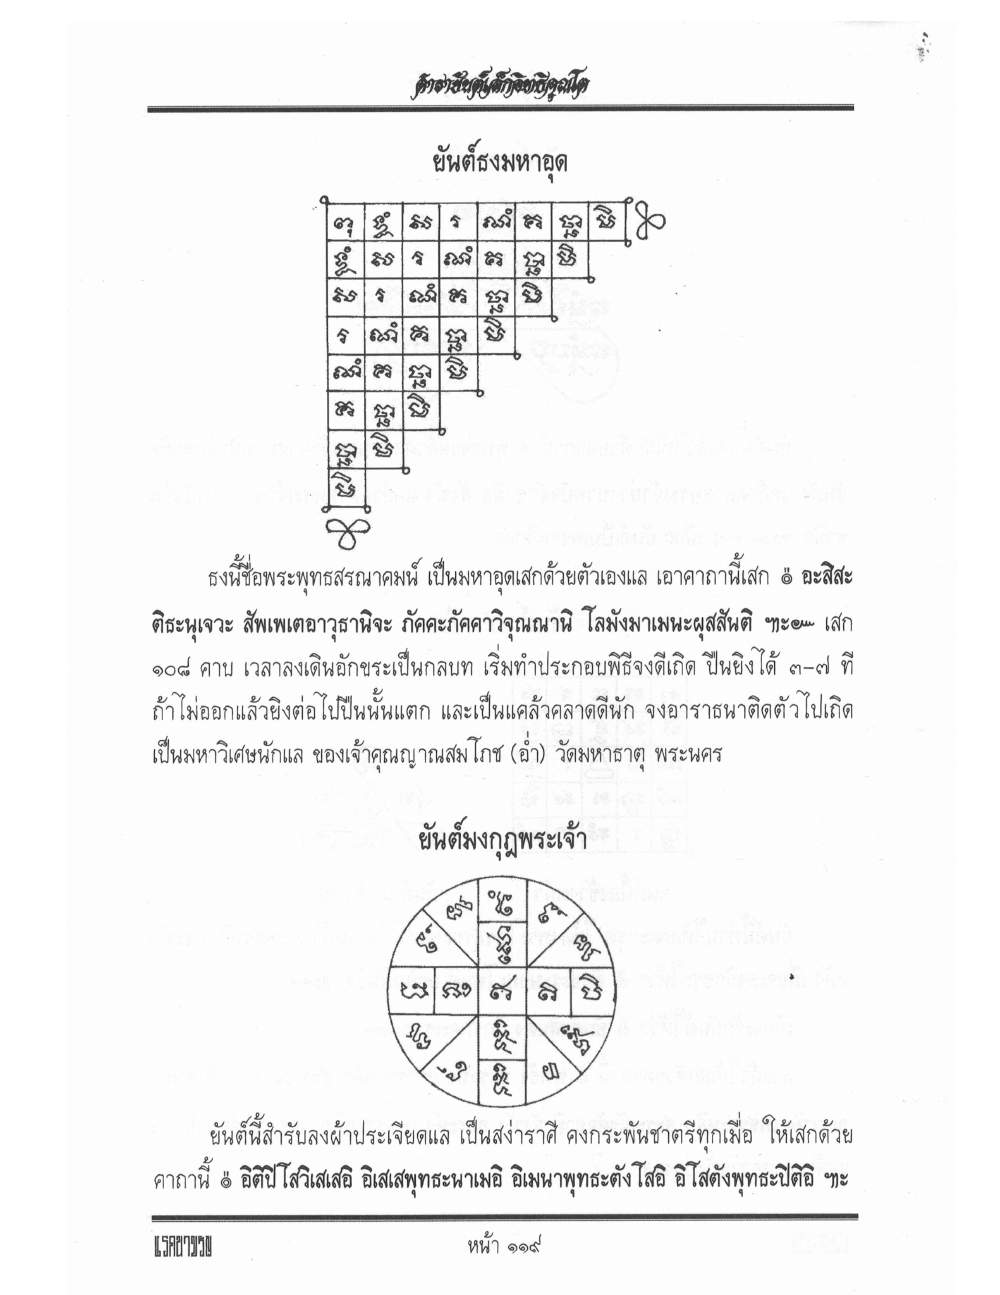 ตำรายันต์เล็กอิทธิคุณโต
ยันต์ธงมหาอุด
ពុ ទ្ធំ ស រ ណំ គ ច្ឆា មិ
ទ្ធំ ស រ ណំ គ ច្ឆា មិ
ស រ ណំ គ ច្ឆា មិ
រ ណំ គ ច្ឆា មិ
ណំ គ ច្ឆា មិ
គ ច្ឆា មិ
ច្ឆា មិ
មិ
ธงนี้ชื่อพระพุทธสรณาคมน์ เป็นมหาอุดเสกด้วยตัวเองแล เอาคาถานี้เสก ๏ อะสิสะ
ติธะนุเจวะ สัพเพเตอาวุธานิจะ ภัคคะภัคคาวิจุณณานิ โลมังมาเมนะผุสสันติ ฯะ๛ เสก
๑๐๘ คาบ เวลาลงเดินอักขระเป็นกลบท เริ่มทำประกอบพิธีจงดีเถิด ปืนยิงได้ ๓–๗ ที
ถ้าไม่ออกแล้วยิงต่อไปปืนนั้นแตก และเป็นแคล้วคลาดดีนัก จงอาราธนาติดตัวไปเถิด
เป็นมหาวิเศษนักแล ของเจ้าคุณญาณสมโภช (อ่ำ) วัดมหาธาตุ พระนคร
ยันต์มงกุฎพระเจ้า
ยันต์นี้สำรับลงผ้าประเจียดแล เป็นสง่าราศี คงกระพันชาตรีทุกเมื่อ ให้เสกด้วย
คาถานี้ ๏ อิติปิโสวิเสเสอิ อิเสเสพุทธะนาเมอิ อิเมนาพุทธะตังโสอิ อิโสตังพุทธะปิติอิ ฯะ
หน้า ๑๑๙